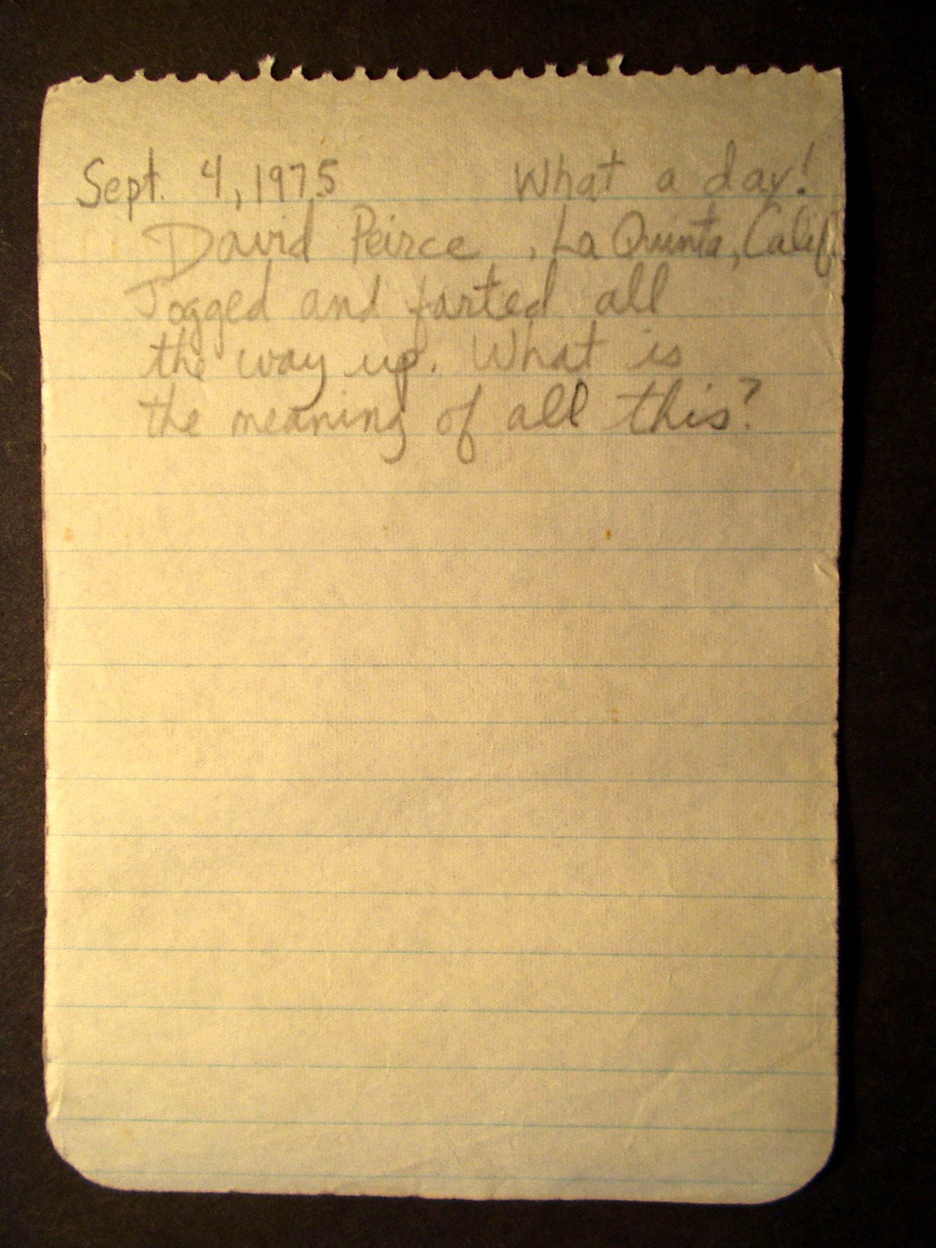 Sept. 4, 1975 What a day!
David Peirce , La Quinta, Calif.
Jogged and farted all
the way up. What is
the meaning of all this?